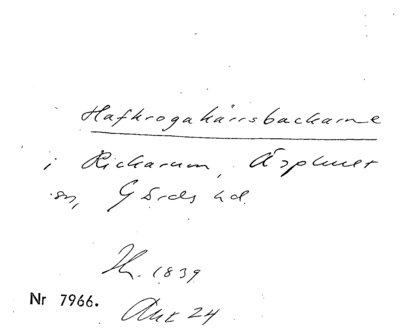 Hafkrogakärrsbackarne
i Rickarum, Äsphult
sn, Gärds hd.
H. 1839
Nr 7966.
Akt 24